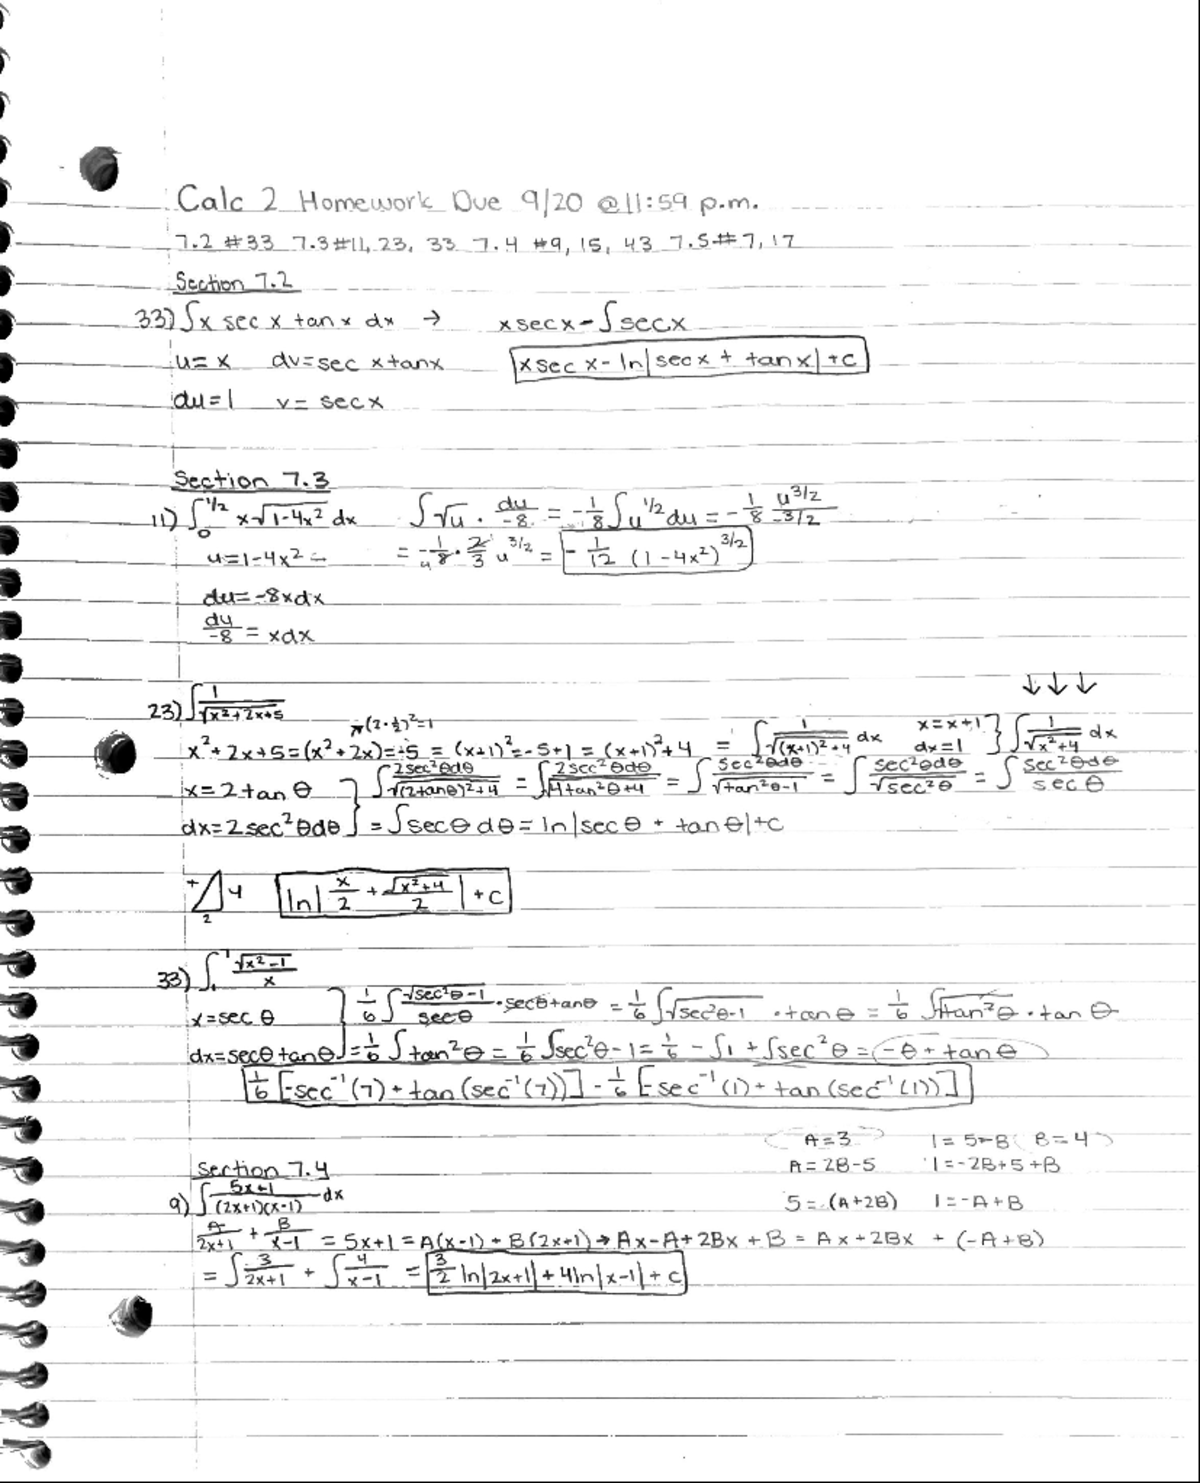 Calc 2 Homework Due 9/20 @11:59 p.m.
7.2 #33 7.3#11, 23, 33 7.4 #9, 15, 43 7.5#7, 17
Section 7.2
33) ∫x sec x tan x dx → x sec x - ∫sec x
u = x dv = sec x tan x x sec x - ln|sec x + tan x| + c
du = 1 v = sec x
Section 7.3
11) ∫₀^1/2 x√(1-4x²) dx ∫√u · du/-8 = -1/8 ∫u^1/2 du = -1/8 u^3/2 / -3/2
u = 1-4x² = = -1/8 · 2/3 u^3/2 = -1/12 (1-4x²)^3/2
du = -8x dx
du/-8 = x dx
↓↓↓
23) ∫ 1/√(x²+2x+5)
(2·1/2)² = 1
x²+2x+5 = (x²+2x) = -5 = (x+1)² = -5+1 = (x+1)²+4 = ∫ 1/√((x+1)²+4) dx x = x+1 dx = 1 } ∫ 1/√(x²+4) dx
x = 2 tan θ ∫ 2sec²θdθ/√((2tanθ)²+4) = ∫ 2sec²θdθ/√(4tan²θ+4) = ∫ sec²θdθ/√(tan²θ-1) = ∫ sec²θdθ/√(sec²θ) = ∫ sec²θdθ/sec θ
dx = 2sec²θdθ } = ∫sec θ dθ = ln|sec θ + tan θ| + c
4 2 ln| x/2 + √(x²+4)/2 | + c
33) ∫ √(x²-1)/x
x = sec θ 1/6 ∫ √(sec²θ-1)/sec θ · secθtanθ = 1/6 ∫√(sec²θ-1) · tan θ = 1/6 ∫√(tan²θ) · tan θ
dx = secθ tanθ } = 1/6 ∫ tan²θ = 1/6 ∫sec²θ-1 = 1/6 - ∫1 + ∫sec²θ = -θ + tan θ
1/6 [-sec⁻¹(7) + tan(sec⁻¹(7))] - 1/6 [-sec⁻¹(1) + tan(sec⁻¹(1))]
A = 3 1 = 5-B B = 4
Section 7.4 A = 2B-5 1 = -2B+5+B
9) ∫ 5x+1/(2x+1)(x-1) dx 5 = (A+2B) 1 = -A+B
A/2x+1 + B/x-1 = 5x+1 = A(x-1) + B(2x+1) → Ax-A+2Bx+B = Ax+2Bx + (-A+B)
= ∫ 3/2x+1 + ∫ 4/x-1 = 3/2 ln|2x+1| + 4ln|x-1| + c